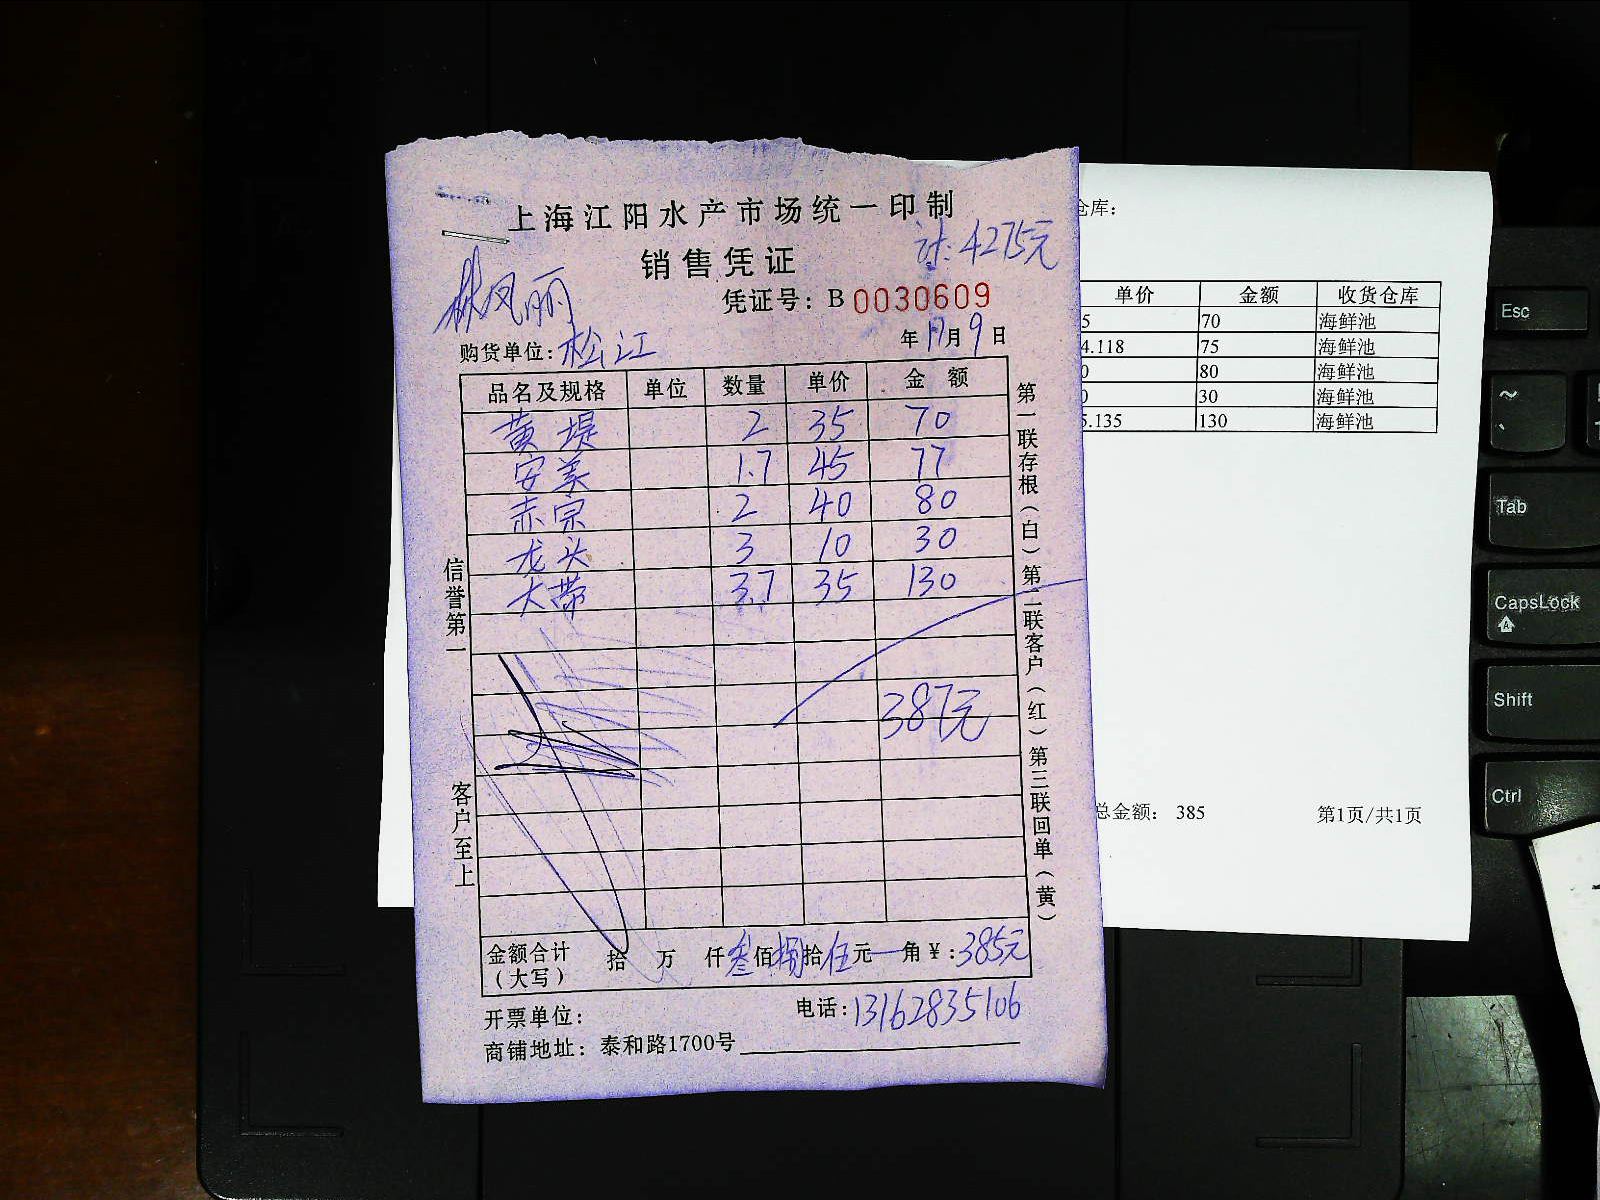 上海江阳水产市场统一印制
计:4275元
销售凭证
林凤丽
凭证号: B 0030609
购货单位: 松江
年 月 9 日
品名及规格 单位 数量 单价 金 额
黄堤 2 35 70
安美 1.7 45 77
赤宗 2 40 80
龙头 3 10 30
大带 3.7 35 130
387元
金额合计(大写) 拾 万 仟 叁 佰 捌 拾 伍 元 一 角 ¥: 385元
开票单位:
电话: 13162835106
商铺地址: 泰和路1700号
信誉第一
客户至上
第一联存根(白) 第二联客户(红) 第三联回单(黄)
仓库:
单价 金额 收货仓库
5 70 海鲜池
4.118 75 海鲜池
0 80 海鲜池
0 30 海鲜池
5.135 130 海鲜池
总金额: 385
第1页/共1页
Esc
~
Tab
CapsLock
A
Shift
Ctrl